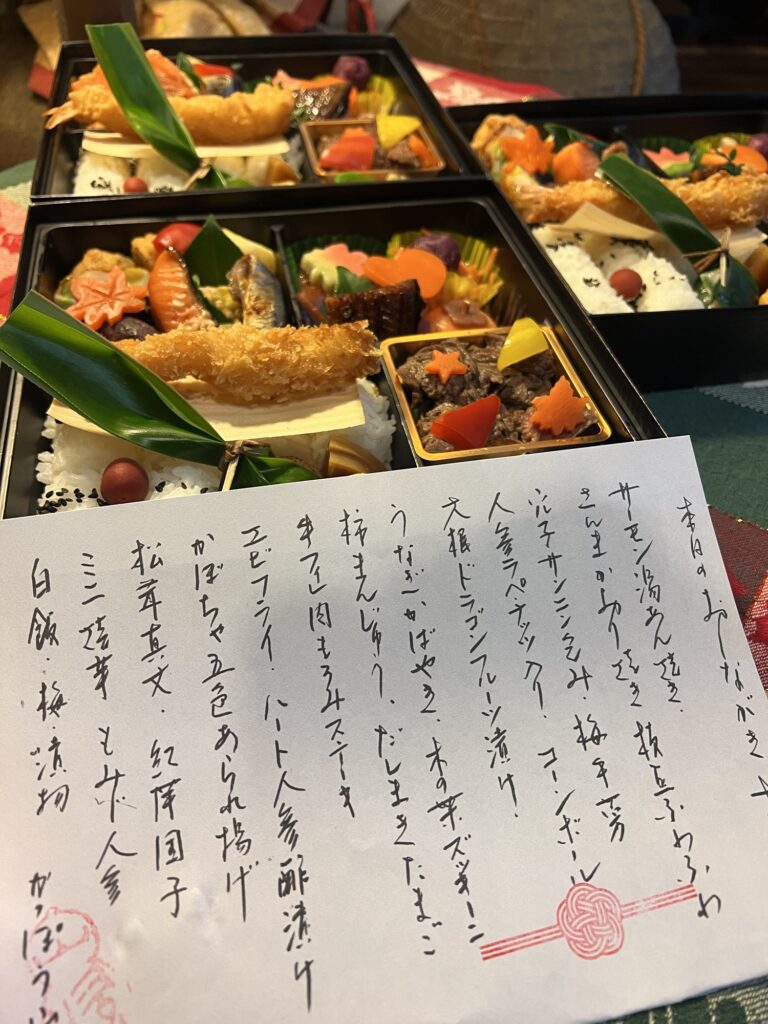 本日のおしながき
サーモン湯あん焼き. 枝豆ふわふわ
さんまかおり焼き 梅牛蒡
穴子サンニン包み. コーンボール
人参ラペナッツ入り.
大根ドラゴンフルーツ漬け.
うなぎかばやき. 木の葉ズッキーニ
柿まんじゅう. だしまきたまご
牛フィレ肉もろみステーキ
エビフライ. ハート人参酢漬け
かぼちゃ五色あられ揚げ
松茸真丈. 紅芋団子
ミニ焼芋 もみじ人参
白飯・梅・漬物
かっぽう